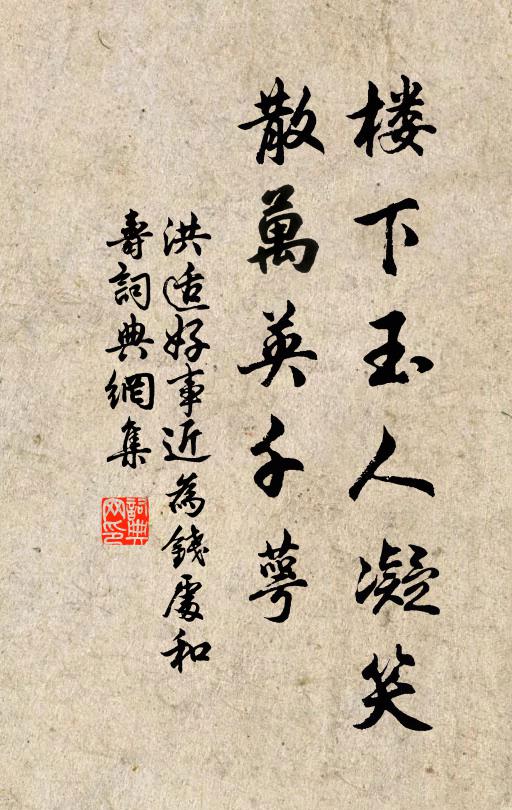 楼下玉人凝笑
散萬英千萼
洪适好事近為錢處和
壽詞典網集
詞典
网印